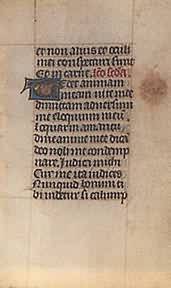 et non alius et oculi
mei conspecturi sunt
Et in carne. 
Tedet animam
meam vite mee
dimittam adversum
me eloquium meum
loquar in amaritu
dine anime mee dicā
deo noli me condemp
nare. Indica michi
Cur me ita iudices
Nunquid bonum ti
bi videtur si calump